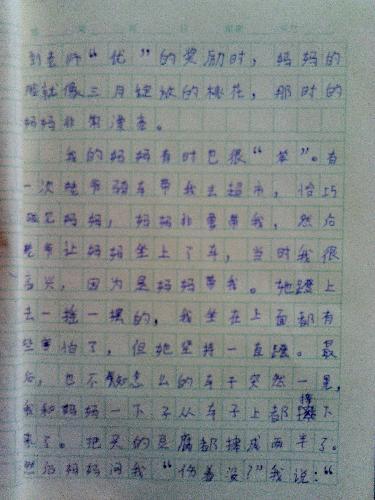 到老师“优”的奖励时，妈妈的
脸就像三月绽放的桃花，那时的
妈妈非常漂亮。
我的妈妈有时也很“笨”。有
一次爷爷骑车带我去超市，恰巧
碰见妈妈，妈妈非要带我，然后
爷爷让妈妈坐上了车，当时我很
高兴，因为是妈妈带我。她蹬上
去一摇一摆的，我坐在上面都有
些害怕了，但她坚持一直蹬。最
后，也不知怎么的车子突然一晃，
我和妈妈一下子从车子上都摔下
来了。把买的豆腐都摔成两半了。
然后妈妈问我“伤着没？”我说：“